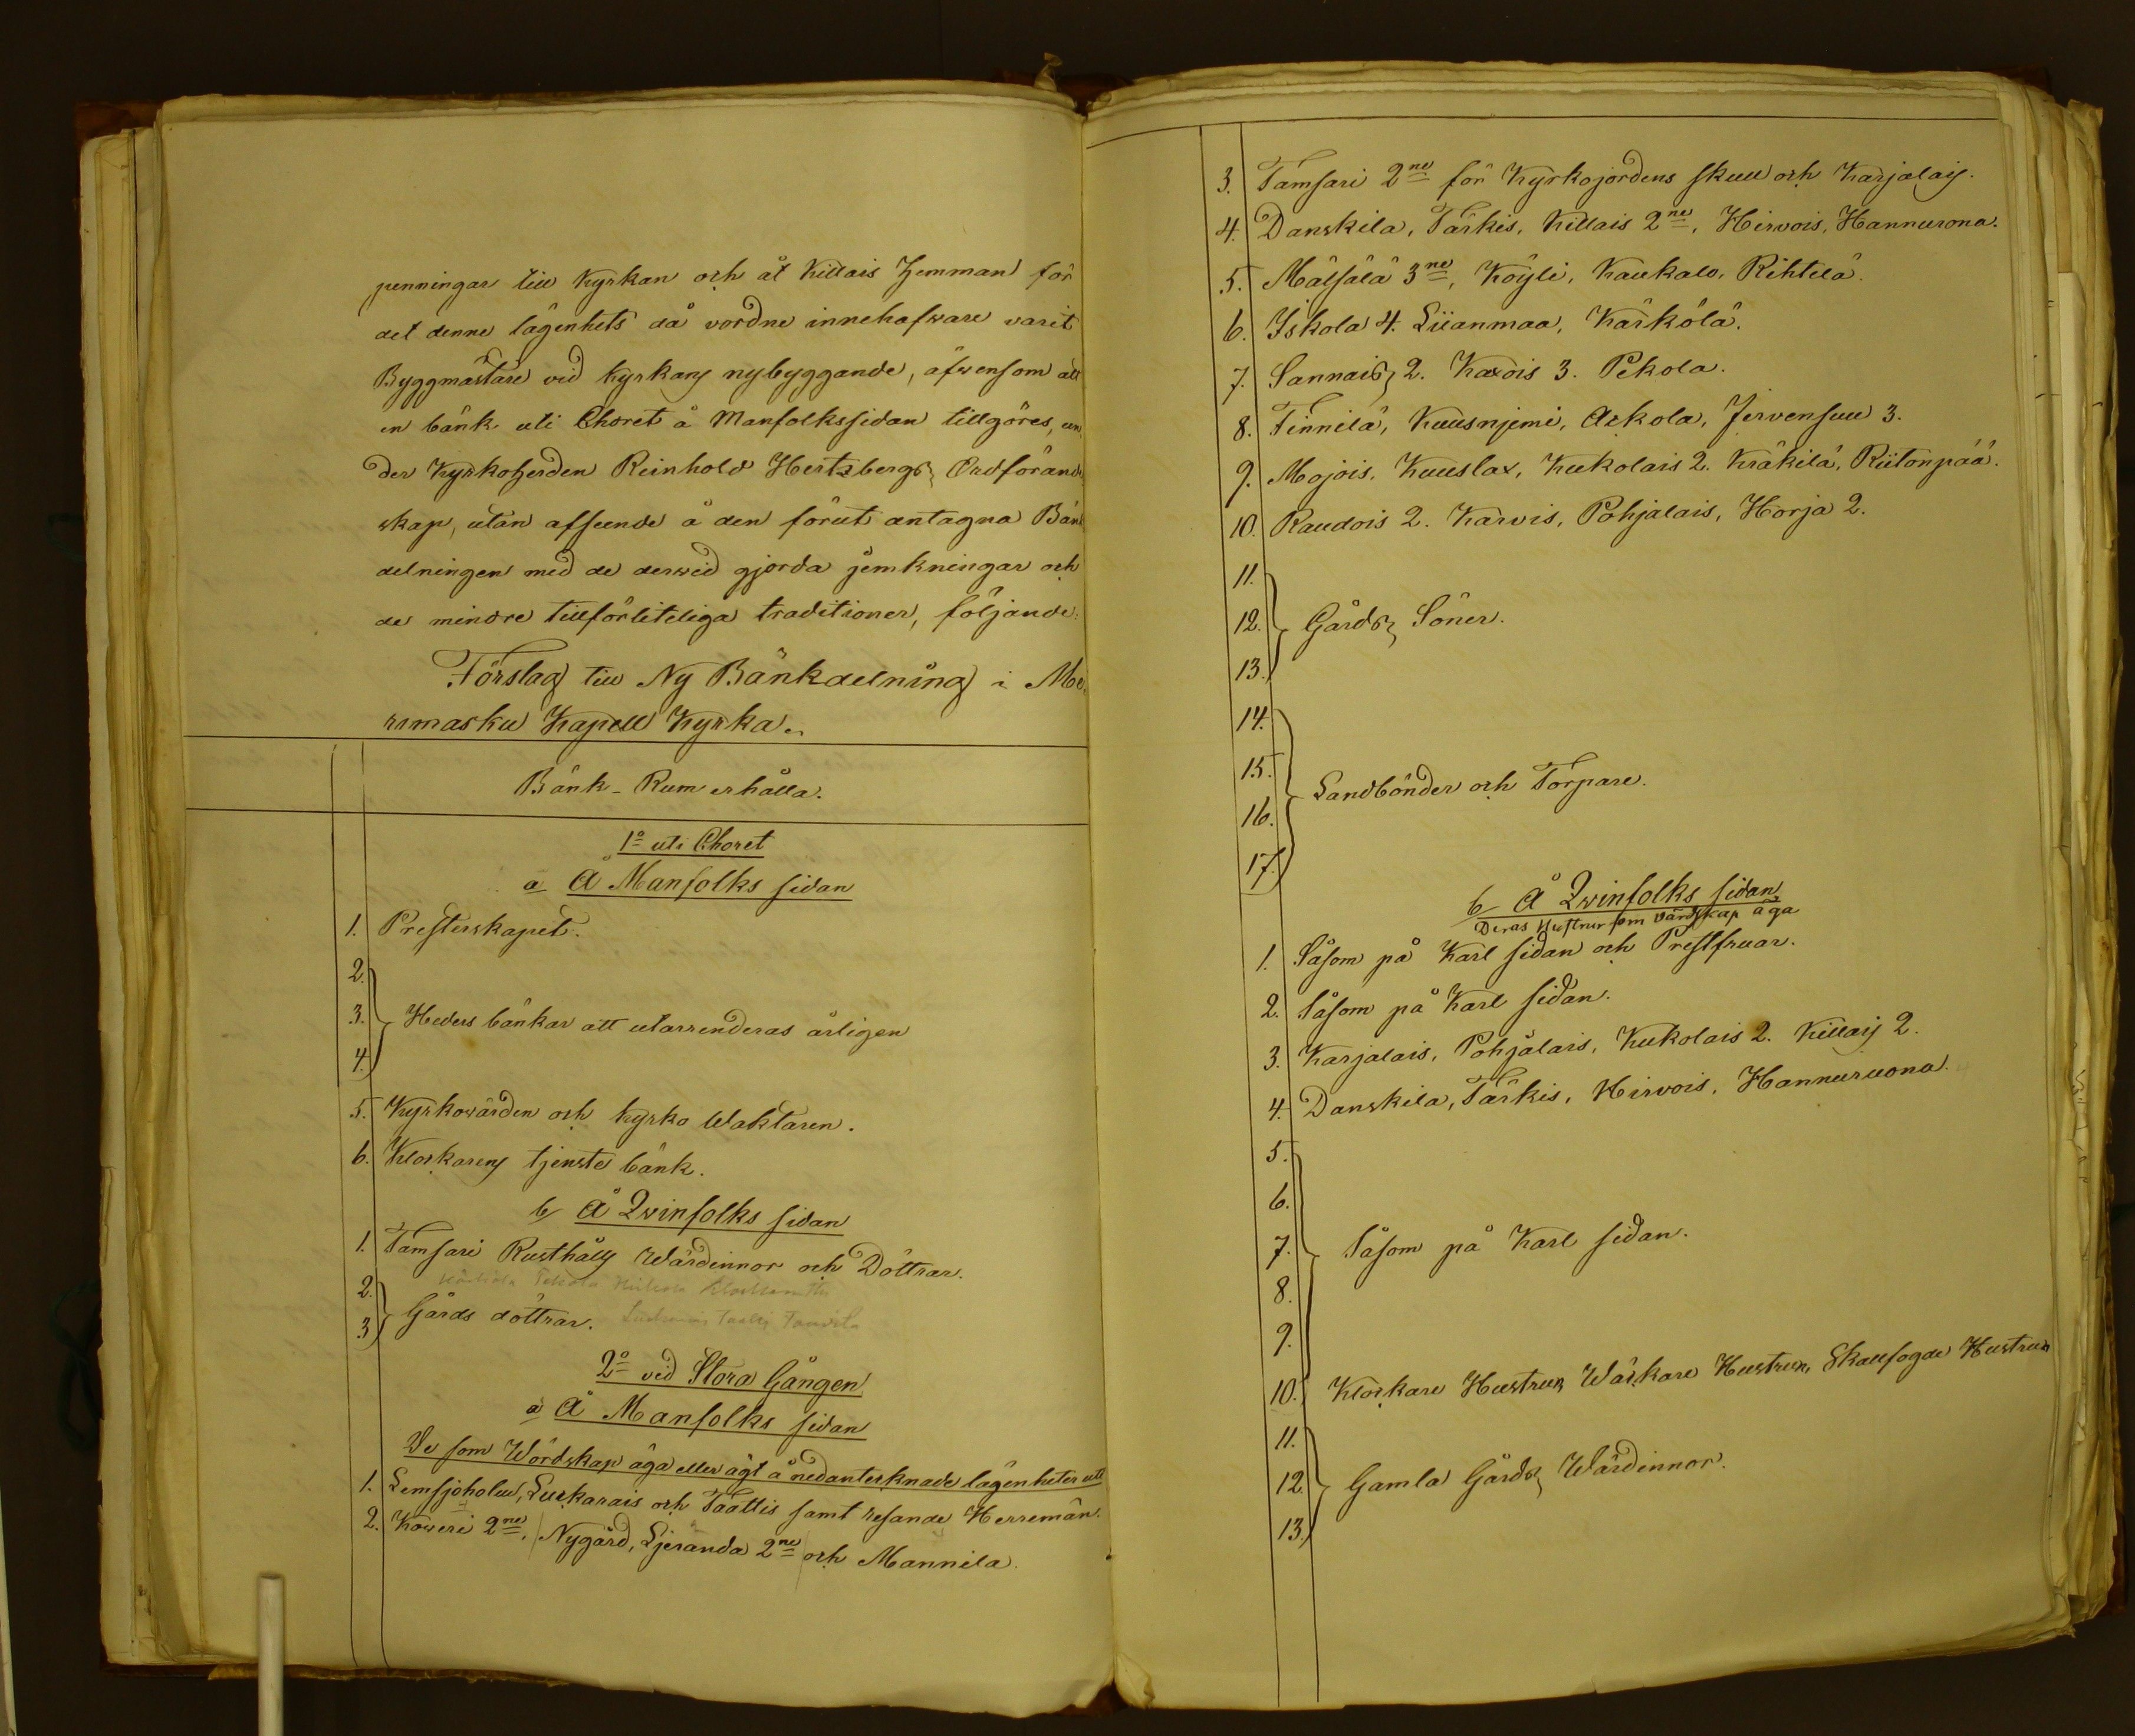 penningar till Kyrkan och åt Killais Hemman för
det denne lägenhets då vordne innehafware varit
Byggmästare vid Kyrkans nybyggande, äfwensom att
en bänk uti Choret å Manfolkssidan tillgöres, un
der Kyrkoherden Reinhold Hertzbergs Ordförand
skap, utan afseende å den förut antagna Bänk
delningen med de derwid gjorda jemkningar och
de mindre tillförliteliga traditioner, följande:
Förslag till Ny Bänkdelning i Me
rimasku Kapell Kyrka.
Bänk-Rum erhålla.
1o uti Choret
a Å Manfolks sidan
1. Presterskapet.
2.
3. Heders bänkar att utarrenderas årligen
4.
5. Kyrkowärden och kyrko Waktaren.
6. Klockarens tjenste bänk.
b Å Qwinfolks sidan
1. Tamsari Rusthålls Wärdinnor och Döttrar.
2.
3 Gårds döttrar.
2o vid Stora Gången
a Å Manfolks sidan
De som Wärdskap äga eller ägt å nedanteknade lägenheter uti
1. Lemsjöholm, Luckarais och Taattis samt resande Herremän.
2. Köweri 2ne, Nygård, Ljeranda 2ne och Mannila.
3. Tamsari 2ne för Kyrkojordens skull och Karjalais.
4. Danskila, Tärkis, Killais 2ne, Hirvois, Hannurona.
5. Mälsälä 3ne, Köyli, Kaukalo, Rihtilä.
6. Iskola 4. Liianmaa, Kärkölä.
7. Sannais 2. Kaxois 3. Pekola.
8. Tinnilä, Kuusnjemi, Arkola, Jervensuu 3.
9. Mojois, Kuuslax, Kukolais 2. Kräkilä, Riitonpää.
10. Raudois 2. Karvis, Pohjalais, Horja 2.
11.
12. Gårds Söner.
13.
14.
15. Landbönder och Torpare.
16.
17.
b Å Qwinfolks sidan
Deras Hustrur som Värdskap äga
1. Såsom på Karl sidan och Prestfruar.
2. Såsom på Karl sidan.
3. Karjalais, Pohjalais, Kukolais 2. Killais 2.
4. Danskila, Tärkis, Hirvois, Hannuruona.
5.
6.
7. Såsom på Karl sidan.
8.
9.
10. Klockare Hustrun, Wäckare Hustrun, Skallfogde Hustrun
11.
12. Gamla Gårds Wärdinnor.
13.